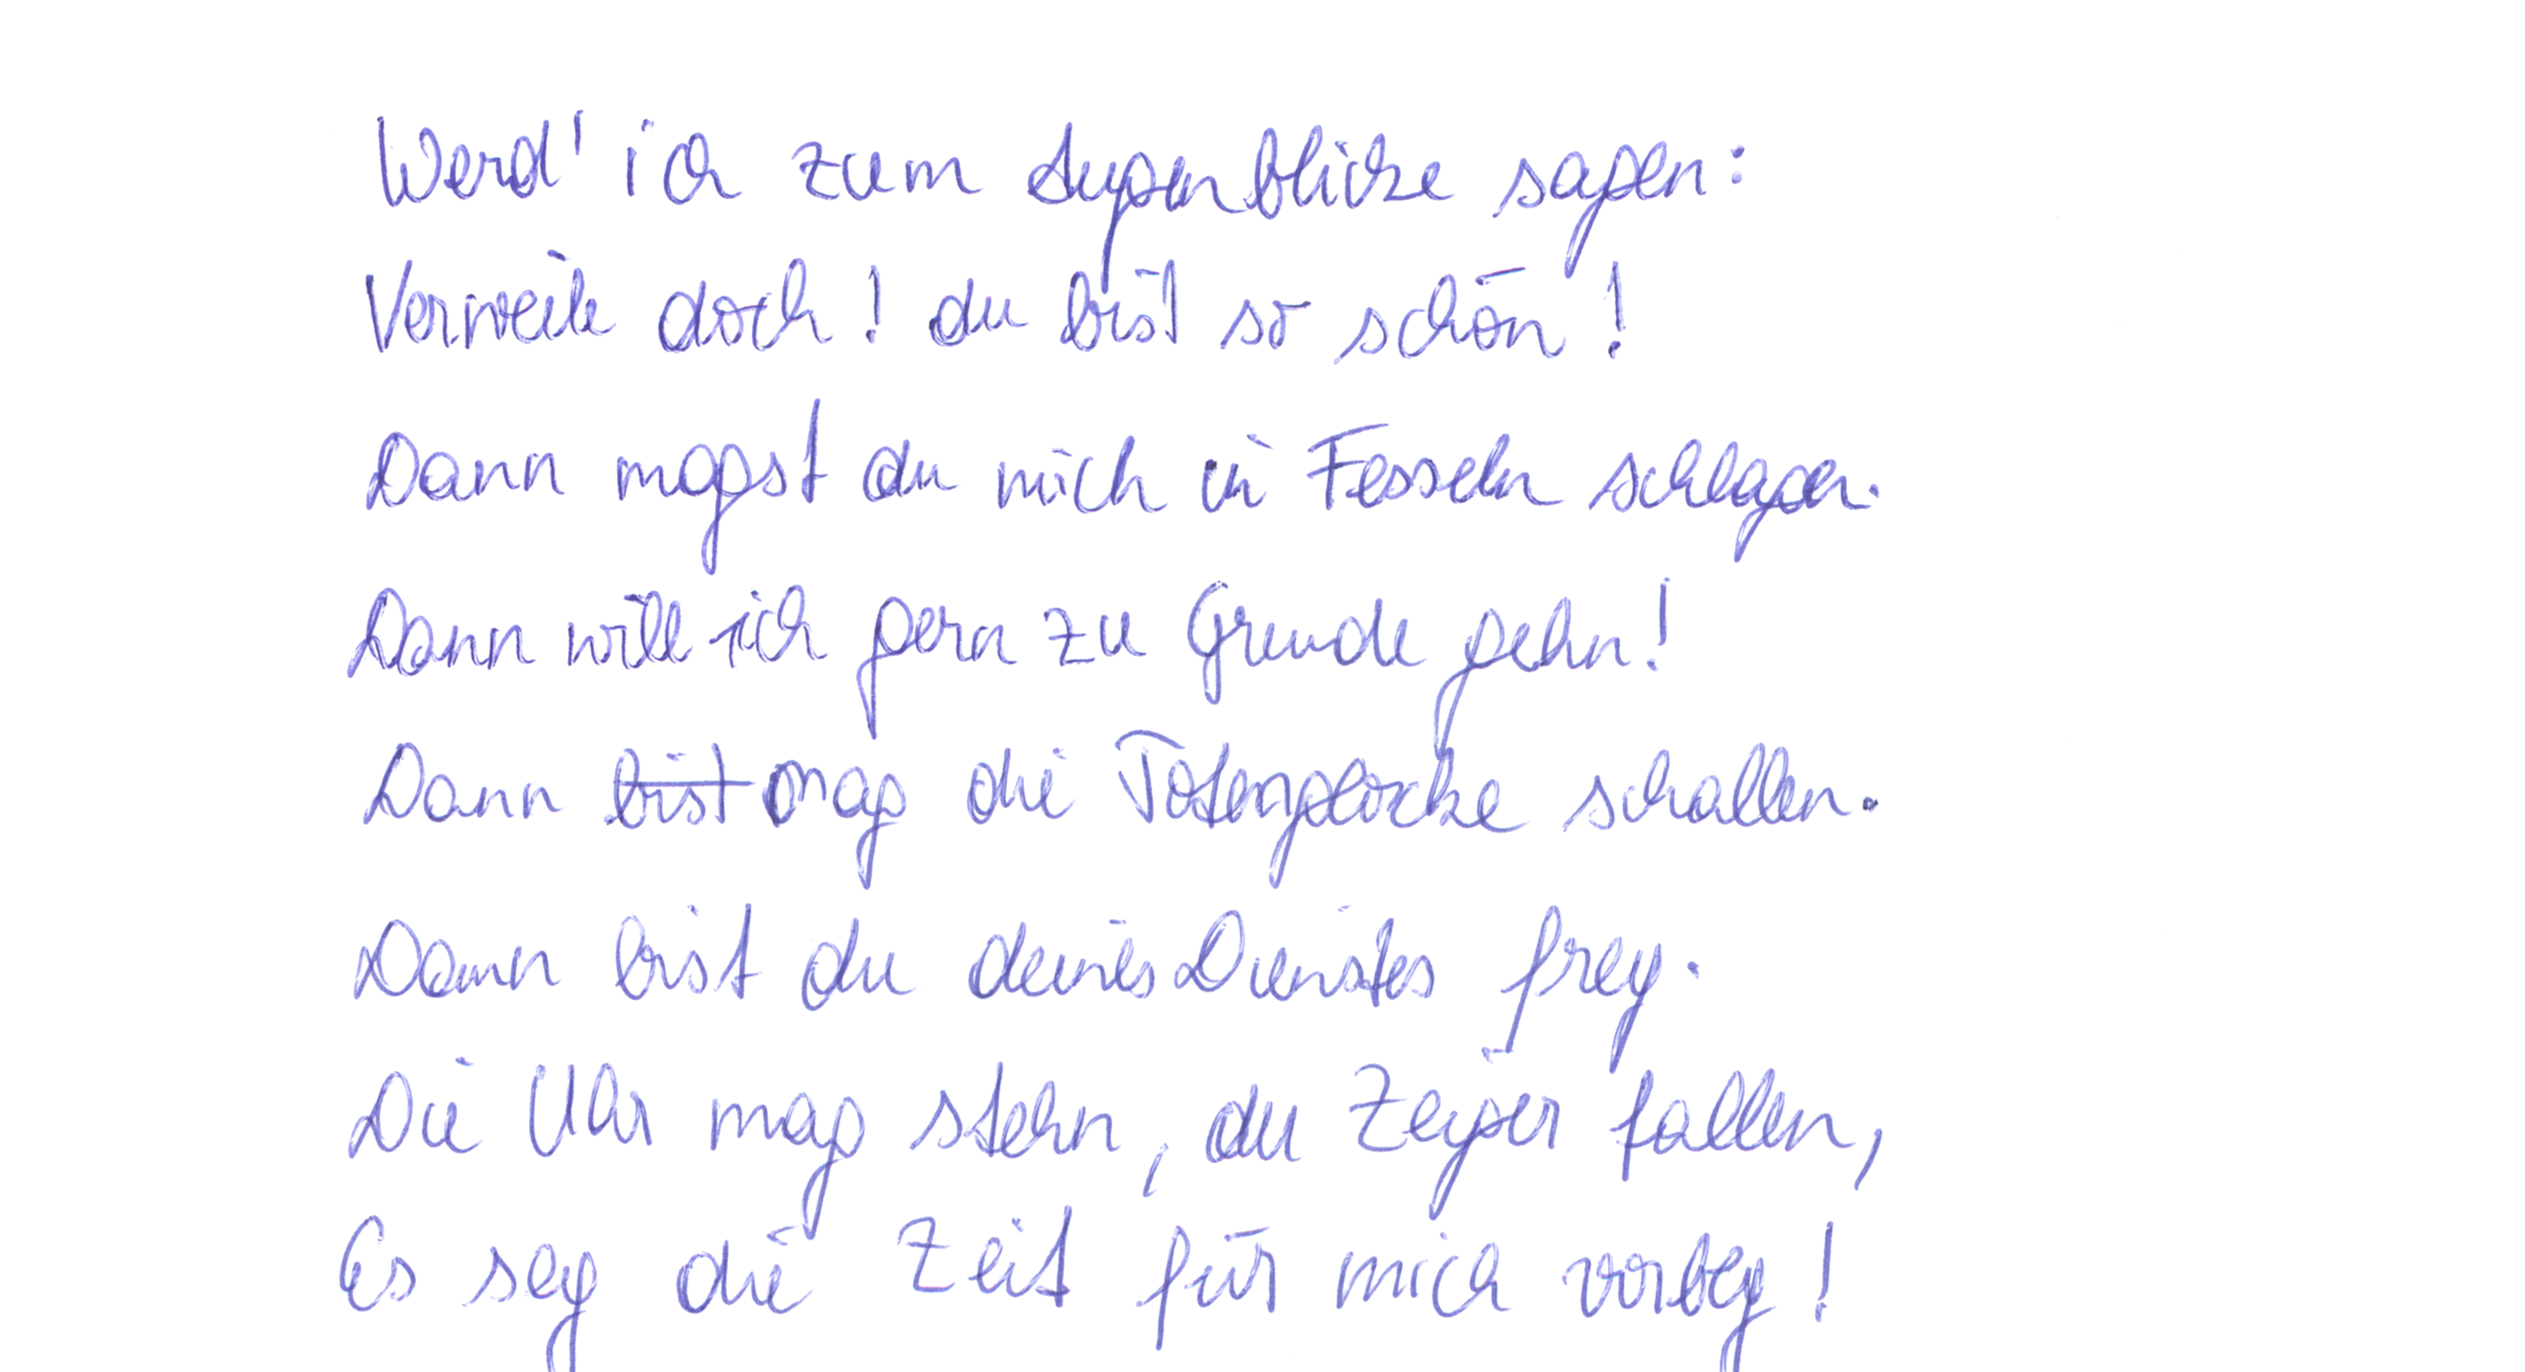 Werd' ich zum Augenblicke sagen:
Verweile doch! du bist so schön!
Dann magst du mich in Fesseln schlagen.
Dann will ich gern zu Grunde gehn!
Dann ~~bist~~ mag die Totenglocke schallen.
Dann bist du deines Dienstes frey.
Die Uhr mag stehn, du Zeiger fallen,
Es sey die Zeit für mich vorbey!